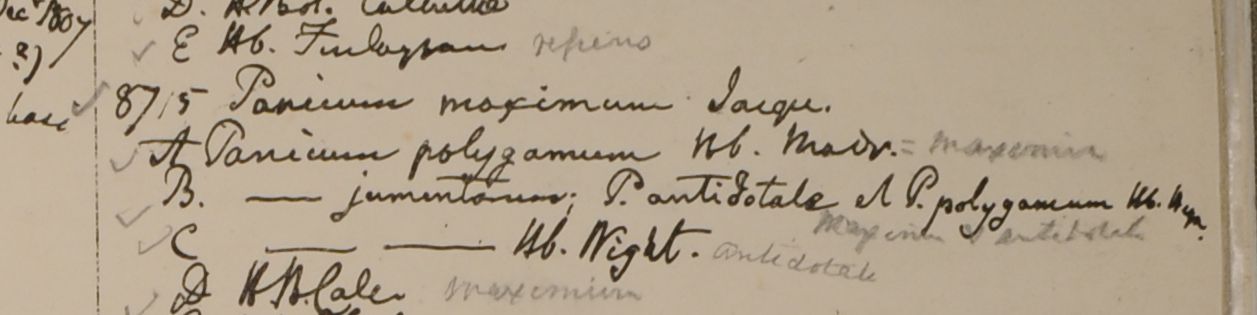 Dec 1807
D. H.Bot. Calcutta
?)
E Hb. Finlayson repens
8715 Panicum maximum Jacqu.
A Panicum polygamum Hb. Madr. = maximum
B. —— jumentorum; P. antidotale et P. polygamum Hb. Heyn.
maximum & antidotale
C —— —— Hb. Wight. antidotale
D H.B.Calc. maximum